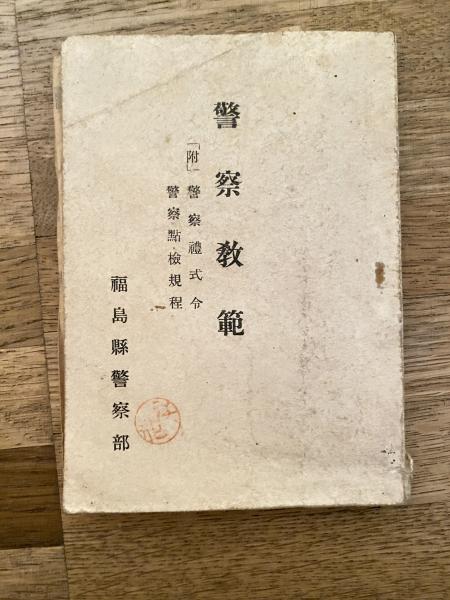 警察敎範
「附」警察禮式令
警察點檢規程
福島縣警察部